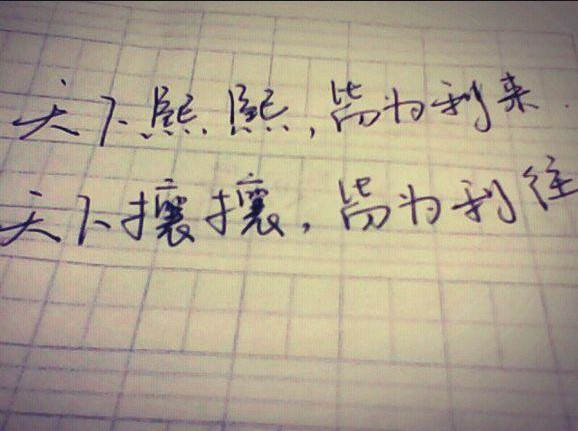 天下熙熙，皆为利来
天下攘攘，皆为利往